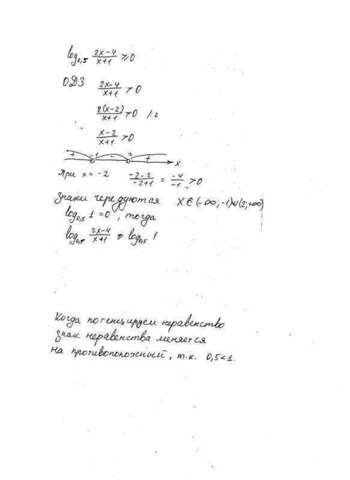 log₀,₅ (2x-4)/(x+1) ≥ 0
ОДЗ (2x-4)/(x+1) > 0
2(x-2)/(x+1) > 0 /:2
(x-2)/(x+1) > 0
+ -1 - 2 + x
При x = -2 (-2-2)/(-2+1) = -4/-1 > 0
Знаки чередуются x ∈ (-∞; -1)∪(2; +∞)
log₀,₅ 1 = 0, тогда
log₀,₅ (2x-4)/(x+1) ≥ log₀,₅ 1
Когда потенцируем неравенство
знак неравенства меняется
на противоположный, т.к. 0,5<1.